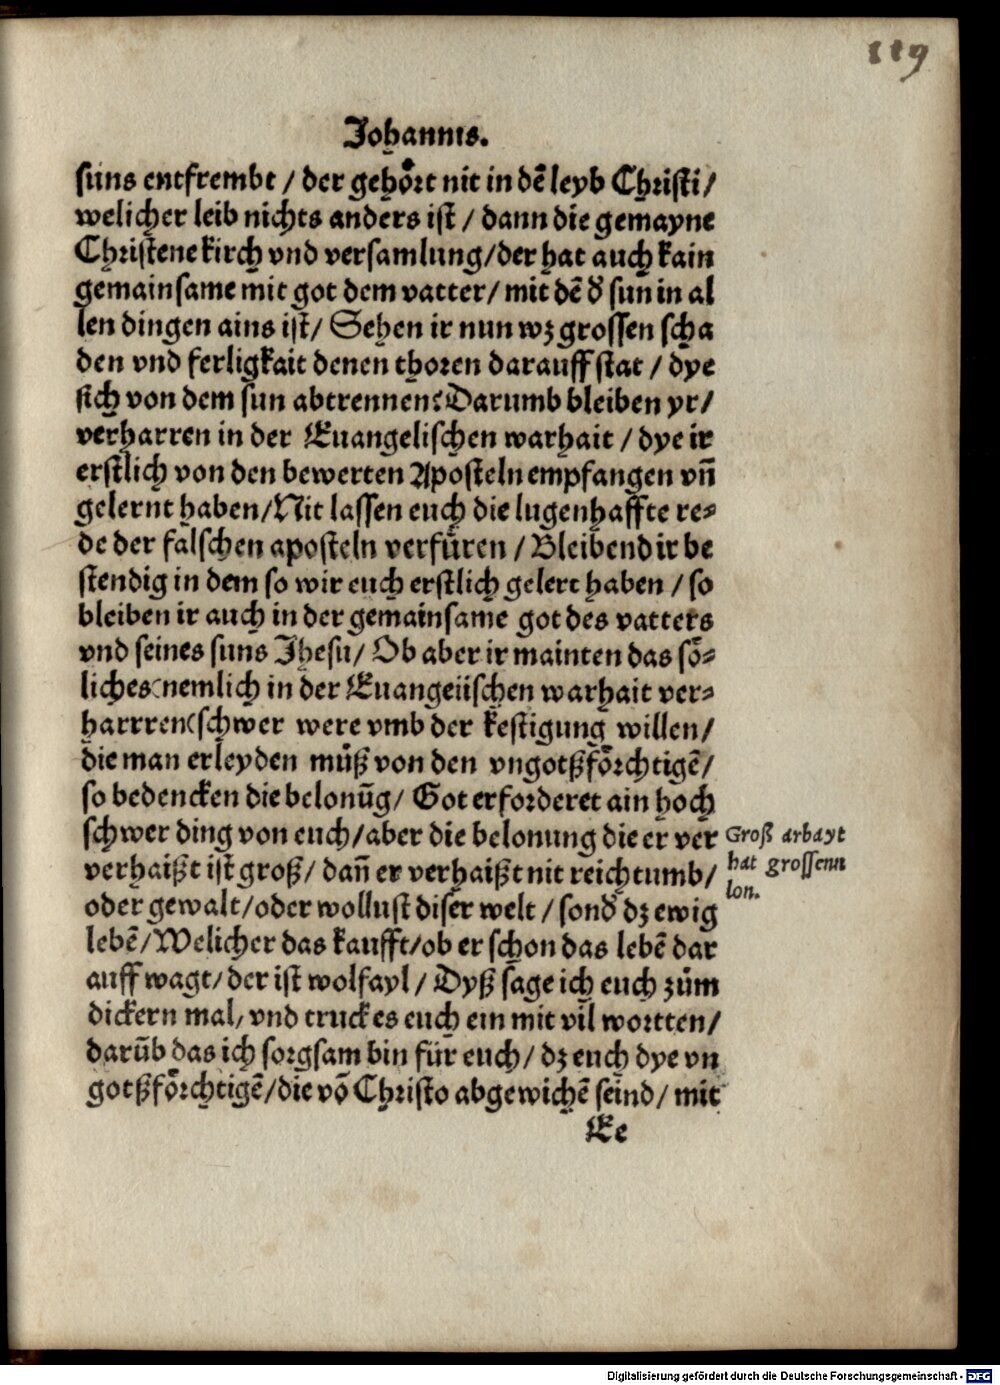 119
Johannis.
suns entfrembt / der gehoͤrt nit in dẽ leyb Christi /
welicher leib nichts anders ist / dann die gemayne
Christene kirch vnd versamlung / der hat auch kain
gemainsame mit got dem vatter / mit dẽ d̕ sun in al
len dingen ains ist / Sehen ir nun wz grossen scha
den vnd ferligkait denen thoren darauff stat / dye
sich von dem sun abtrennen? Darumb bleiben yr /
verharren in der Euangelischen warhait / dye ir
erstlich von den bewerten Aposteln empfangen vñ
gelernt haben / Nit lassen euch die lugenhaffte re⸗
de der falschen aposteln verfuͤren / Bleibend ir be
stendig in dem so wir euch erstlich gelert haben / so
bleiben ir auch in der gemainsame got des vatters
vnd seines suns Jhesu / Ob aber ir mainten das soͤ⸗
liches (nemlich in der Euangeiischen warhait ver⸗
harrren( schwer were vmb der kestigung willen /
die man erleyden muͤß von den vngotßfoͤrchtigẽ /
so bedencken die belonũg / Got erforderet ain hoch
schwer ding von euch / aber die belonung die er ver
verhaißt ist groß / dañ er verhaißt nit reichtumb /
oder gewalt / oder wollust diser welt / sond̕ dz ewig
lebẽ / Welicher das kaufft / ob er schon das lebẽ dar
auff wagt / der ist wolfayl / Dyß sage ich euch zům
dickern mal, vnd truck es euch ein mit vil wortten /
darũb das ich sorgsam bin fuͤr euch / dz euch dye vn
gotßfoͤrchtigẽ / die võ Christo abgewichẽ seind / mit
Ee
Groß arbayt
hat grossenn
lon.
Digitalisierung gefördert durch die Deutsche Forschungsgemeinschaft - DFG